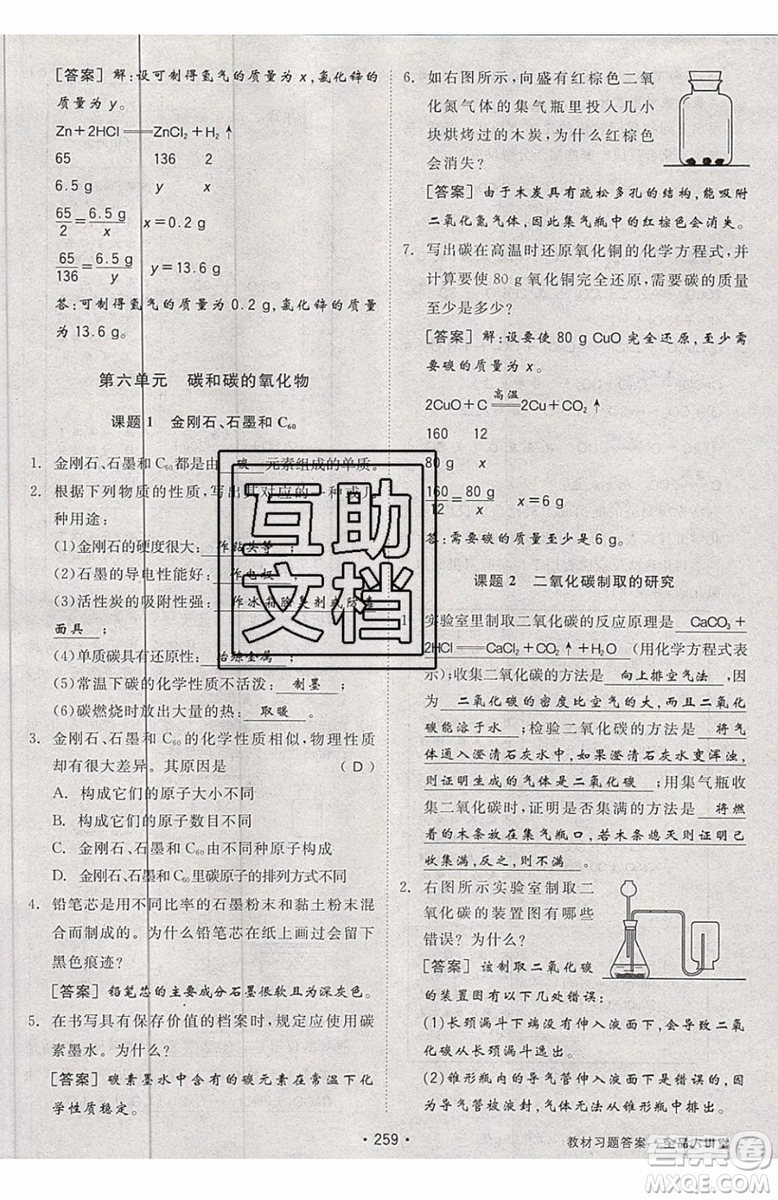 [答案] 解:设可制得氢气的质量为 x,氯化锌的
质量为 y。
Zn+2HCl══ZnCl₂+H₂↑
65 136 2
6.5 g y x
65/2=6.5 g/x x=0.2 g
65/136=6.5 g/y y=13.6 g
答:可制得氢气的质量为 0.2 g,氯化锌的质量
为 13.6 g。
第六单元 碳和碳的氧化物
课题 1 金刚石、石墨和 C₆₀
1. 金刚石、石墨和 C₆₀ 都是由 碳 元素组成的单质。
2. 根据下列物质的性质,写出其对应的一种或几
种用途:
(1)金刚石的硬度很大: 作钻头等 ;
(2)石墨的导电性能好: 作电极 ;
(3)活性炭的吸附性强: 作冰箱除臭剂或防毒
面具 ;
(4)单质碳具有还原性: 冶炼金属 ;
(5)常温下碳的化学性质不活泼: 制墨 ;
(6)碳燃烧时放出大量的热: 取暖 。
3. 金刚石、石墨和 C₆₀ 的化学性质相似,物理性质
却有很大差异。其原因是 ( D )
A. 构成它们的原子大小不同
B. 构成它们的原子数目不同
C. 金刚石、石墨和 C₆₀ 由不同种原子构成
D. 金刚石、石墨和 C₆₀ 里碳原子的排列方式不同
4. 铅笔芯是用不同比率的石墨粉末和黏土粉末混
合而制成的。为什么铅笔芯在纸上画过会留下
黑色痕迹?
[答案] 铅笔芯的主要成分石墨很软且为深灰色。
5. 在书写具有保存价值的档案时,规定应使用碳
素墨水。为什么?
[答案] 碳素墨水中含有的碳元素在常温下化
学性质稳定。
6. 如右图所示,向盛有红棕色二氧
化氮气体的集气瓶里投入几小
块烘烤过的木炭,为什么红棕色
会消失?
[答案] 由于木炭具有疏松多孔的结构,能吸附
二氧化氮气体,因此集气瓶中的红棕色会消失。
7. 写出碳在高温时还原氧化铜的化学方程式,并
计算要使 80 g 氧化铜完全还原,需要碳的质量
至少是多少?
[答案] 解:设要使 80 g CuO 完全还原,至少需
要碳的质量为 x。
高温
2CuO+C══2Cu+CO₂↑
160 12
80 g x
160/12=80 g/x x=6 g
答:需要碳的质量至少是 6 g。
课题 2 二氧化碳制取的研究
1. 实验室里制取二氧化碳的反应原理是 CaCO₃+
2HCl══CaCl₂+CO₂↑+H₂O (用化学方程式表
示);收集二氧化碳的方法是 向上排空气法 ,因
为 二氧化碳的密度比空气的大,而且二氧化碳
能溶于水 ;检验二氧化碳的方法是 将气
体通入澄清石灰水中,如果澄清石灰水变浑浊,
则证明生成的气体是二氧化碳 ;用集气瓶收集
二氧化碳时,证明是否集满的方法是 将燃
着的木条放在集气瓶口,若木条熄灭则证明已
收集满,反之,则不满 。
2. 右图所示实验室制取二
氧化碳的装置图有哪些
错误?为什么?
[答案] 该制取二氧化碳
的装置存在如下错误:
(1)长颈漏斗下端没有伸入液面下,会导致二氧
化碳从长颈漏斗逸出。
(2)锥形瓶内的导气管伸入液面下是错误的,会
导致导气管被液封,无法使气体从锥形瓶中导出。
259
教材习题答案 全品大讲堂
互助
文档